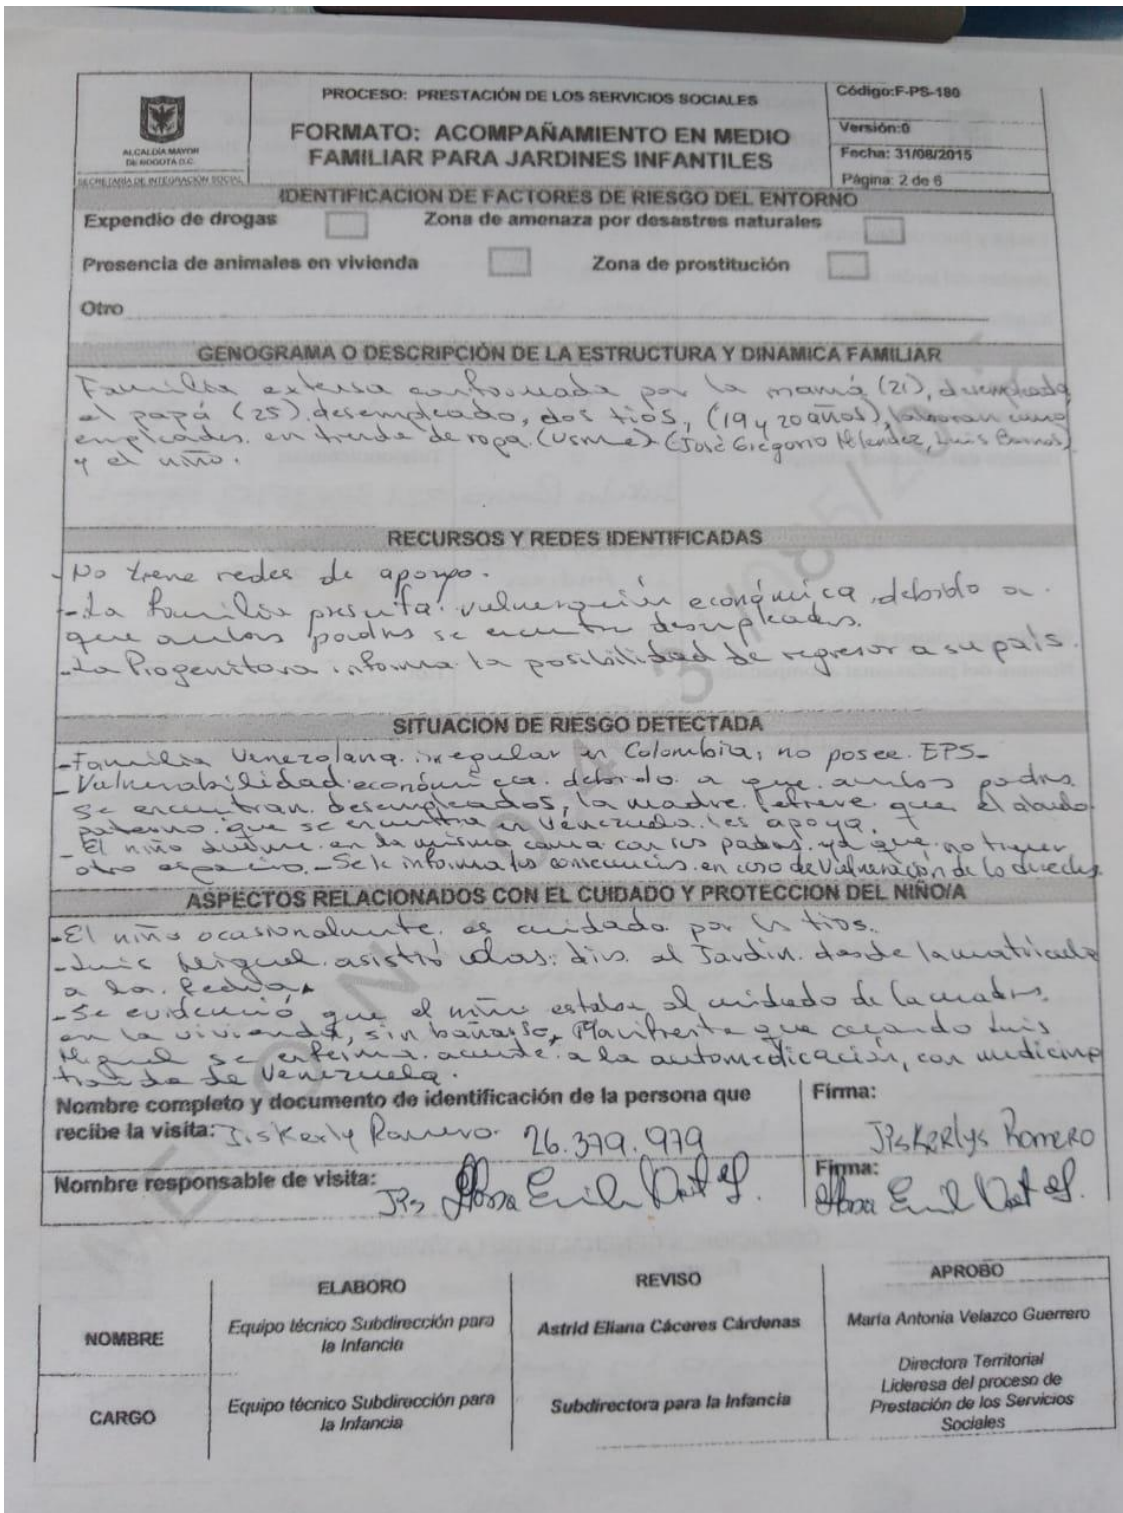 ALCALDÍA MAYOR
DE BOGOTÁ D.C.
SECRETARÍA DE INTEGRACIÓN SOCIAL
PROCESO: PRESTACIÓN DE LOS SERVICIOS SOCIALES
FORMATO: ACOMPAÑAMIENTO EN MEDIO
FAMILIAR PARA JARDINES INFANTILES
Código:F-PS-180
Versión:0
Fecha: 31/08/2015
Página: 2 de 6
IDENTIFICACION DE FACTORES DE RIESGO DEL ENTORNO
Expendio de drogas Zona de amenaza por desastres naturales
Presencia de animales en vivienda Zona de prostitución
Otro
GENOGRAMA O DESCRIPCIÓN DE LA ESTRUCTURA Y DINAMICA FAMILIAR
Familia extensa conformada por la mamá (21), desempleada
el papá (25) desempleado, dos tíos, (19 y 20 años), laboran como
empleados en tienda de ropa. (Usme) (José Gregorio Luis
y el niño.
RECURSOS Y REDES IDENTIFICADAS
-No tiene redes de apoyo.
-La familia presenta económica, debido a
que ambos padres se desempleados.
-La Progenitora informa la posibilidad de regresar a su país.
SITUACION DE RIESGO DETECTADA
-Familia Venezolana irregular en Colombia, no posee EPS-
-Vulnerabilidad económica debido a que ambos padres
se encuentran desempleados, la madre refiere que el abuelo
paterno que se encuentra en Venezuela les apoya.
-El niño duerme en la misma cama con sus padres ya que no tienen
otro espacio. -Se le informa las consecuencias en caso de Vulneración de
ASPECTOS RELACIONADOS CON EL CUIDADO Y PROTECCION DEL NIÑO/A
-El niño ocasionalmente es cuidado por los tíos.
-Luis Miguel asistió días al Jardín desde la matrícula
a la fecha.
-Se evidenció que el niño estaba al cuidado de la madre
en la vivienda, sin bañarse, Manifiesta que cuando Luis
Miguel se enferma acude a la automedicación, con medicina
traída de Venezuela.
Nombre completo y documento de identificación de la persona que
recibe la visita: Jiskerly Romero 26.379.979
Firma:
Jiskerlys Romero
Nombre responsable de visita:
Firma:
ELABORO REVISO APROBO
NOMBRE
Equipo técnico Subdirección para
la Infancia
Astrid Eliana Cáceres Cárdenas
María Antonia Velazco Guerrero
CARGO
Equipo técnico Subdirección para
la Infancia
Subdirectora para la Infancia
Directora Territorial
Lideresa del proceso de
Prestación de los Servicios
Sociales